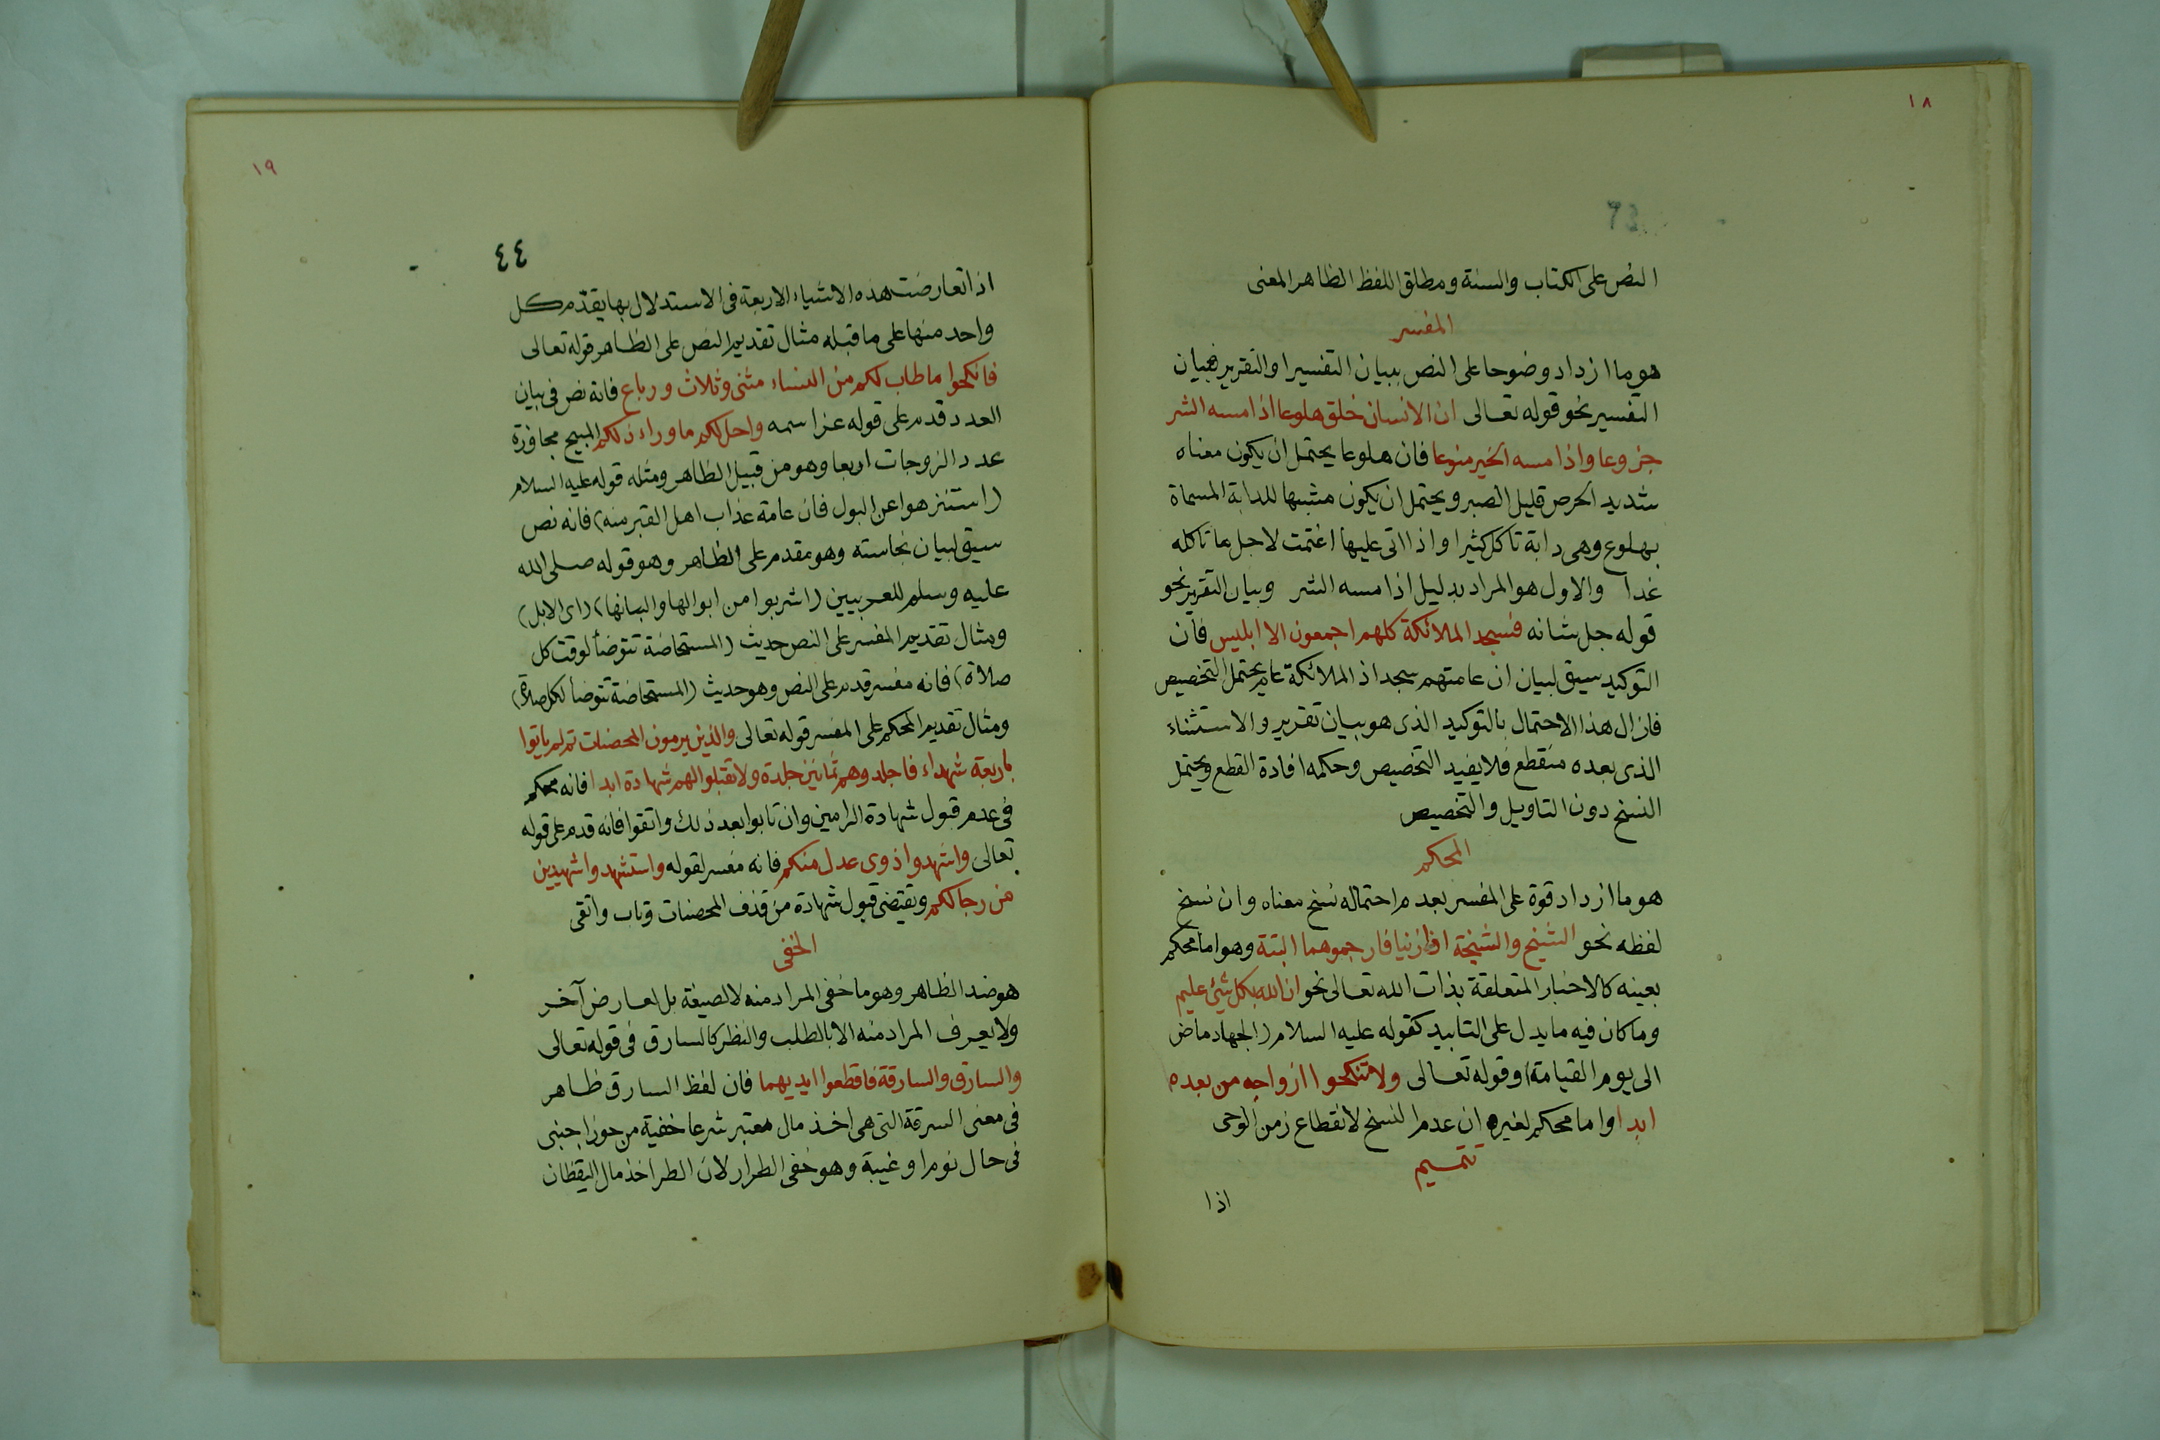 ١٨
النص على الكتاب والسنة ومطلق اللفظ الظاهر المعنى
المفسر
هو ما ازداد وضوحا على النص ببيان التفسير او التقرير فبيان
التفسير نحو قوله تعالى ان الانسان خلق هلوعا اذا مسه الشر
جزوعا واذا مسه الخير منوعا فان هلوعا يحتمل ان يكون معناه
شديد الحرص قليل الصبر ويحتمل ان يكون مشبها للدابة المسماة
بهلوع وهى دابة تاكل كثيرا واذا اتى عليها اغتمت لاجل ما تاكله
غدا والاول هو المراد بدليل اذا مسه الشر وبيان التقرير نحو
قوله جل شانه فسجد الملائكة كلهم اجمعون الا ابليس فان
التوكيد سيق لبيان ان عامتهم سجد اذ الملائكة عام يحتمل التخصيص
فازال هذا الاحتمال بالتوكيد الذى هو بيان تقرير والاستثناء
الذى بعده منقطع فلا يفيد التخصيص وحكمه افادة القطع ويحتمل
النسخ دون التاويل والتخصيص
المحكم
هو ما ازداد قوة على المفسر بعدم احتماله نسخ معناه وان نسخ
لفظه نحو الشيخ والشيخة اذا زنيا فارجموهما البتة وهو اما محكم
بعينه كالاخبار المتعلقة بذات الله تعالى نحو ان الله بكل شيئ عليم
وما كان فيه ما يدل على التابيد كقوله عليه السلام (الجهاد ماض
الى يوم القيامة) وقوله تعالى ولا تنكحوا ازواجه من بعده
ابدا واما محكم لغيره ان عدم النسخ لانقطاع زمن الوحى
تتميم
اذا
١٩
٤٤
اذا تعارضت هذه الاشياء الاربعة فى الاستدلال بها يقدم كل
واحد منها على ما قبله مثال تقديم النص على الظاهر قوله تعالى
فانكحوا ما طاب لكم من النساء مثنى وثلاث ورباع فانه نص فى بيان
العدد قدم على قوله عز اسمه واحل لكم ما وراء ذلكم المبيح مجاوزة
عدد الزوجات اربعا وهو من قبيل الظاهر ومثله قوله عليه السلام
(استنزهوا عن البول فان عامة عذاب اهل القبر منه) فانه نص
سيق لبيان نجاسته وهو مقدم على الظاهر وهو قوله صلى الله
عليه وسلم للعربيين (اشربوا من ابوالها والبانها) (اى الابل)
ومثال تقديم المفسر على النص حديث (المستحاضة تتوضأ لوقت كل
صلاة) فانه مفسر قدم على النص وهو حديث (المستحاضة تتوضأ لكل صلاة)
ومثال تقديم المحكم على المفسر قوله تعالى والذين يرمون المحصنات ثم لم ياتوا
باربعة شهداء فاجلدوهم ثمانين جلدة ولا تقبلوا لهم شهادة ابدا فانه محكم
فى عدم قبول شهادة الرامين وان تابوا بعد ذلك واتقوا فانه قدم على قوله
تعالى واشهدوا ذوى عدل منكم فانه مفسر لقوله واستشهدوا شهيدين
من رجالكم ويقتضى قبول شهادة من قذف المحصنات وتاب واتقى
الخفى
هو ضد الظاهر وهو ما خفى المراد منه لا لصيغة بل لعارض آخر
ولا يعرف المراد منه الا بالطلب والنظر كالسارق فى قوله تعالى
والسارق والسارقة فاقطعوا ايديهما فان لفظ السارق ظاهر
فى معنى السرقة التى هى اخذ مال معتبر شرعا خفية من حرز اجنبى
فى حال نوم او غيبة وهو خفى الطرار لان الطر اخذ مال اليقظان